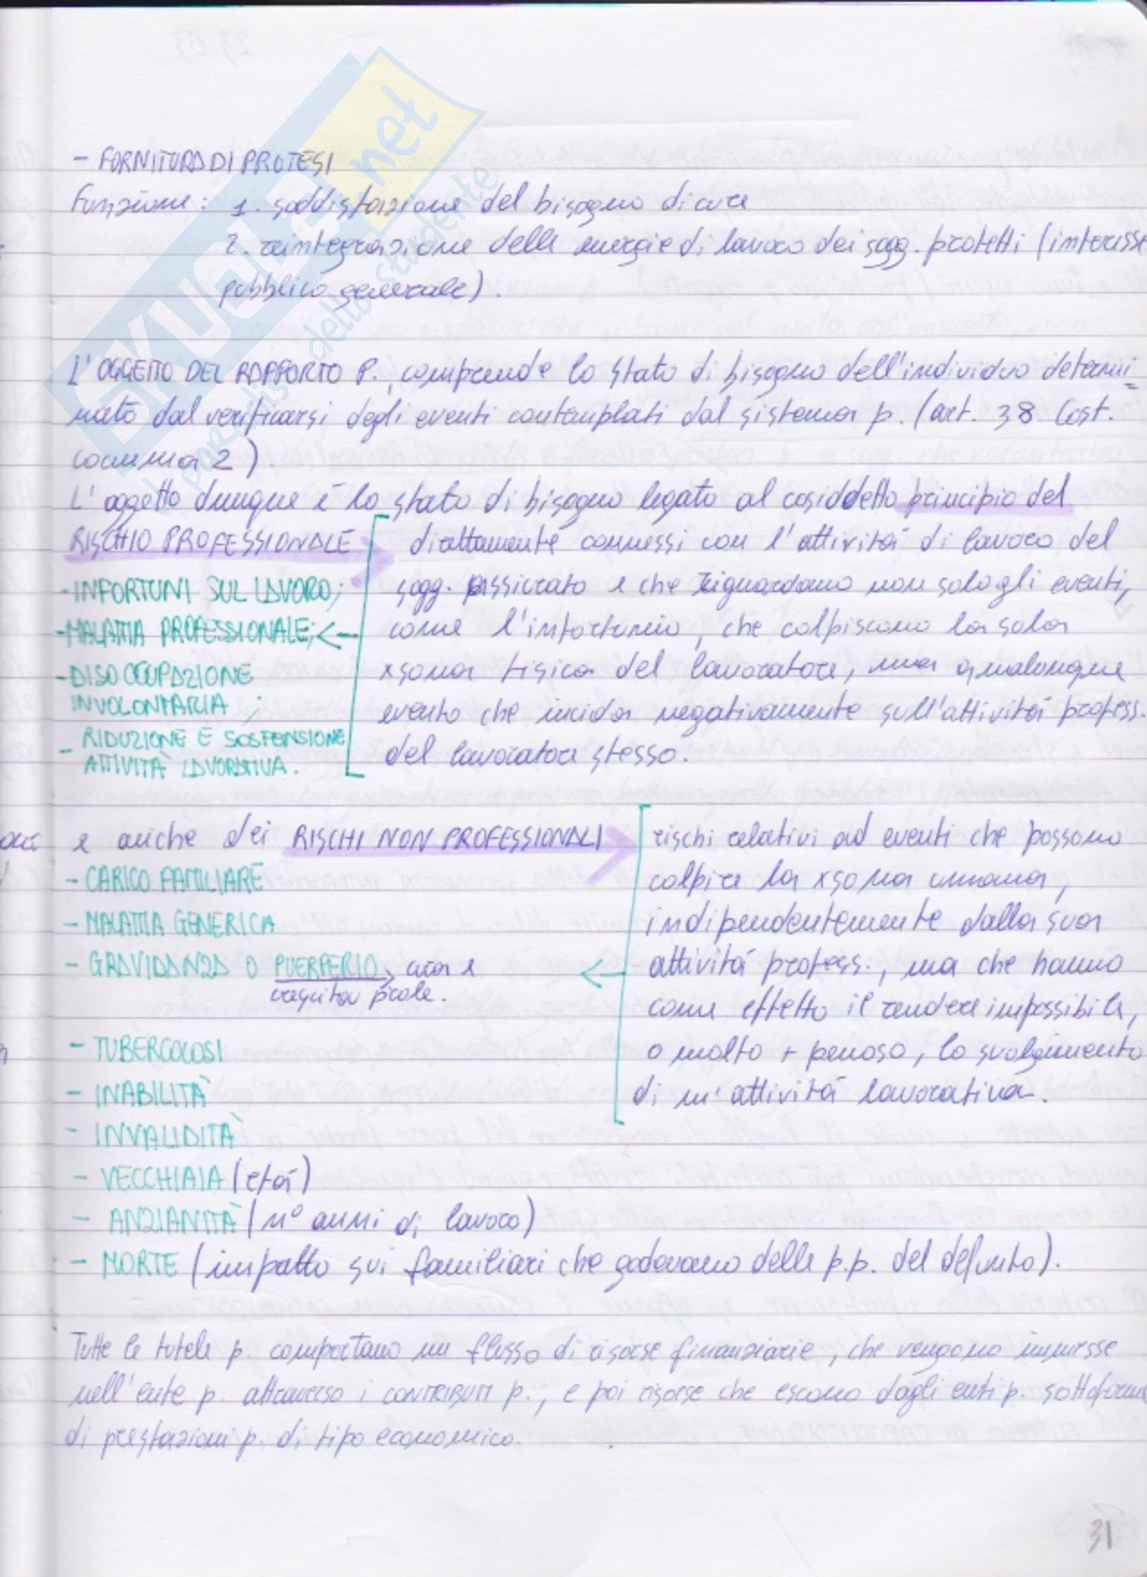 - FORNITURA DI PROTESI
Funzione: 1. soddisfazione del bisogno di cure
2. reintegrazione delle energie di lavoro dei sogg. protetti (interesse
pubblico generale).
L'OGGETTO DEL RAPPORTO P., comprende lo stato di bisogno dell'individuo determi=
nato dal verificarsi degli eventi contemplati dal sistema p. (art. 38 Cost.
comma 2).
L'oggetto dunque è lo stato di bisogno legato al cosiddetto principio del
RISCHIO PROFESSIONALE
- INFORTUNI SUL LAVORO;
- MALATTIA PROFESSIONALE; <-
- DISOCCUPAZIONE
INVOLONTARIA ;
- RIDUZIONE E SOSPENSIONE
ATTIVITÀ LAVORATIVA.
direttamente connessi con l'attività di lavoro del
sogg. assicurato e che riguardano non solo gli eventi,
come l'infortunio, che colpiscono la sola
xsona fisica del lavoratore, ma qualunque
evento che incida negativamente sull'attività profess.
del lavoratore stesso.
e anche dei RISCHI NON PROFESSIONALI
- CARICO FAMILIARE
- MALATTIA GENERICA
- GRAVIDANZA O PUERPERIO -> cura e
crescita prole.
- TUBERCOLOSI
- INABILITÀ
- INVALIDITÀ
- VECCHIAIA (età)
- ANZIANITÀ (n° anni di lavoro)
- MORTE (impatto sui familiari che godevano delle p.p. del defunto).
rischi relativi ad eventi che possono
colpire la xsona umana,
indipendentemente dalla sua
attività profess., ma che hanno
come effetto il rendere impossibile,
o molto + penoso, lo svolgimento
di un'attività lavorativa.
Tutte le tutele p. comportano un flusso di risorse finanziarie, che vengono immesse
nell'ente p. attraverso i CONTRIBUTI p., e poi risorse che escono dagli enti p. sottoforma
di prestazioni p. di tipo economico.
31
SKUOLA.net